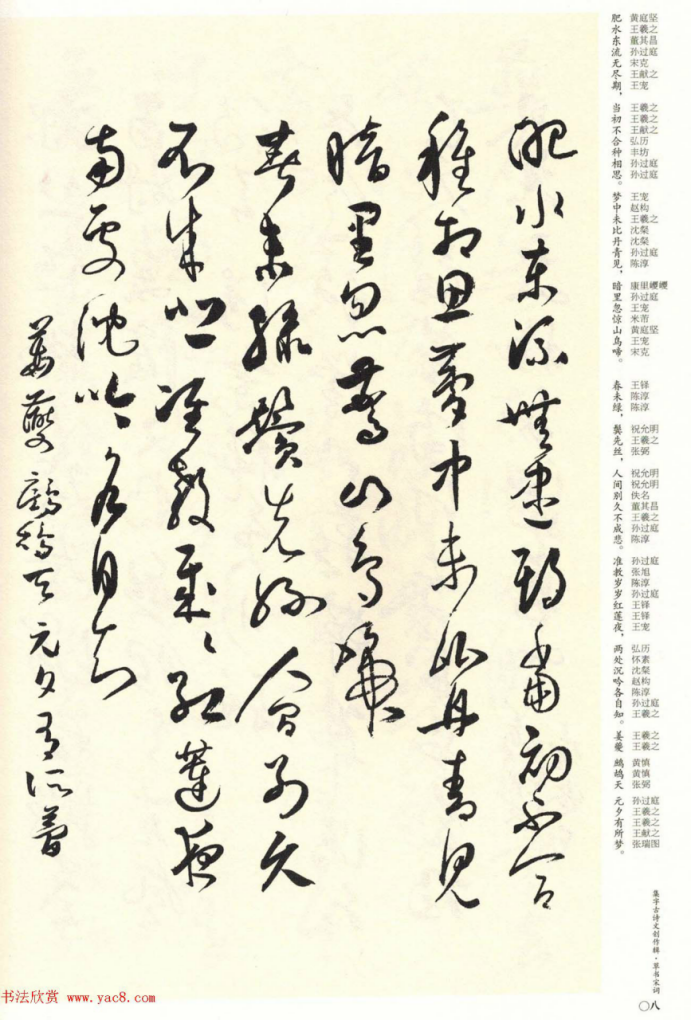 黄庭坚
王羲之
董其昌
孙过庭
宋克
王献之
王宠
王羲之
王羲之
王献之
弘历
丰坊
孙过庭
孙过庭
王宠
赵构
王羲之
沈粲
沈粲
孙过庭
陈淳
康里巎巎
孙过庭
王宠
米芾
黄庭坚
王宠
宋克
王铎
陈淳
陈淳
祝允明
王羲之
张弼
祝允明
祝允明
佚名
董其昌
王羲之
孙过庭
陈淳
孙过庭
张旭
陈淳
孙过庭
王铎
王铎
王宠
弘历
怀素
沈粲
赵构
陈淳
孙过庭
王羲之
王羲之
王羲之
黄慎
黄慎
张弼
孙过庭
王羲之
王羲之
王献之
张瑞图
肥水东流无尽期，当初不合种相思。梦中未比丹青见，暗里忽惊山鸟啼。 春未绿，鬓先丝，人间别久不成悲。准教岁岁红莲夜，两处沉吟各自知。 姜夔 鹧鸪天 元夕有所梦。
集字古诗文创作辑·草书宋词
〇八
肥水東流無盡期當初不合
種相思夢中未比丹青見
暗里忽驚山鳥啼
春未綠鬢先絲人間別久
不成悲准教歲〻紅蓮夜
兩處沈吟各自知
姜夔鷓鴣天元夕有所夢
书法欣赏 www.yac8.com